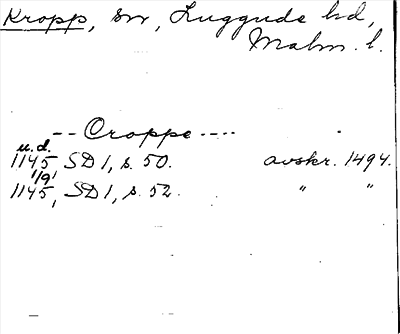 Kropp, sn, Luggude hd,
Malm. l.
-- Croppe ----
u.d.
1145, SD 1, s. 50. avskr. 1494.
1/9
1145, SD 1, s. 52. " "